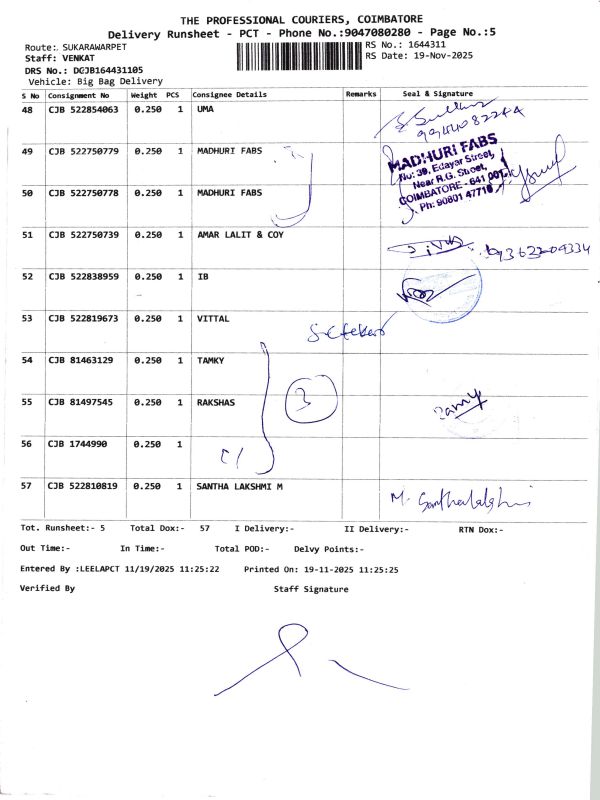 THE PROFESSIONAL COURIERS, COIMBATORE
Delivery Runsheet - PCT - Phone No.:9047080280 - Page No.:5
Route: SUKARAWARPET
RS No.: 1644311
Staff: VENKAT
RS Date: 19-Nov-2025
DRS No.: DCJB164431105
Vehicle: Big Bag Delivery
S No Consignment No Weight PCS Consignee Details Remarks Seal & Signature
48 CJB 522854063 0.250 1 UMA
49 CJB 522750779 0.250 1 MADHURI FABS
MADHURI FABS
No: 39, Edayar Street,
Near R.G. Street,
COIMBATORE - 641 001.
Ph: 90801 47710
50 CJB 522750778 0.250 1 MADHURI FABS
51 CJB 522750739 0.250 1 AMAR LALIT & COY
52 CJB 522838959 0.250 1 IB
53 CJB 522819673 0.250 1 VITTAL
54 CJB 81463129 0.250 1 TAMKY
55 CJB 81497545 0.250 1 RAKSHAS 3
56 CJB 1744990 0.250 1
57 CJB 522810819 0.250 1 SANTHA LAKSHMI M M. Santhalakshmi
Tot. Runsheet:- 5 Total Dox:- 57 I Delivery:- II Delivery:- RTN Dox:-
Out Time:- In Time:- Total POD:- Delvy Points:-
Entered By :LEELAPCT 11/19/2025 11:25:22 Printed On: 19-11-2025 11:25:25
Verified By Staff Signature